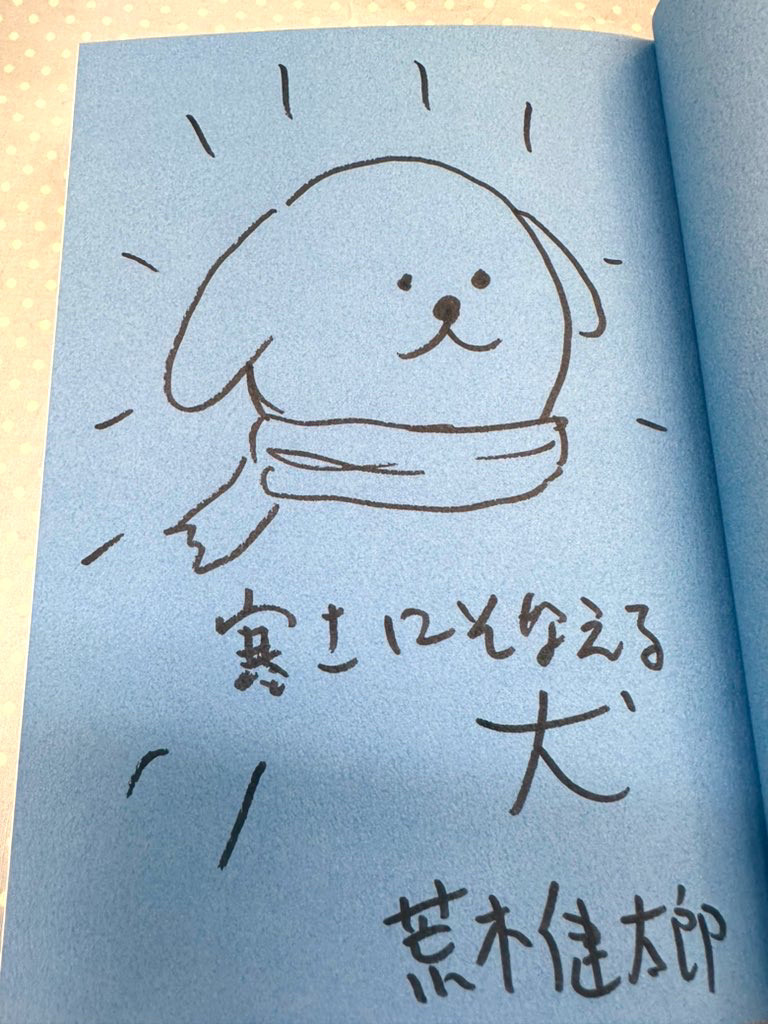 寒さにそなえる
犬
荒木健太郎